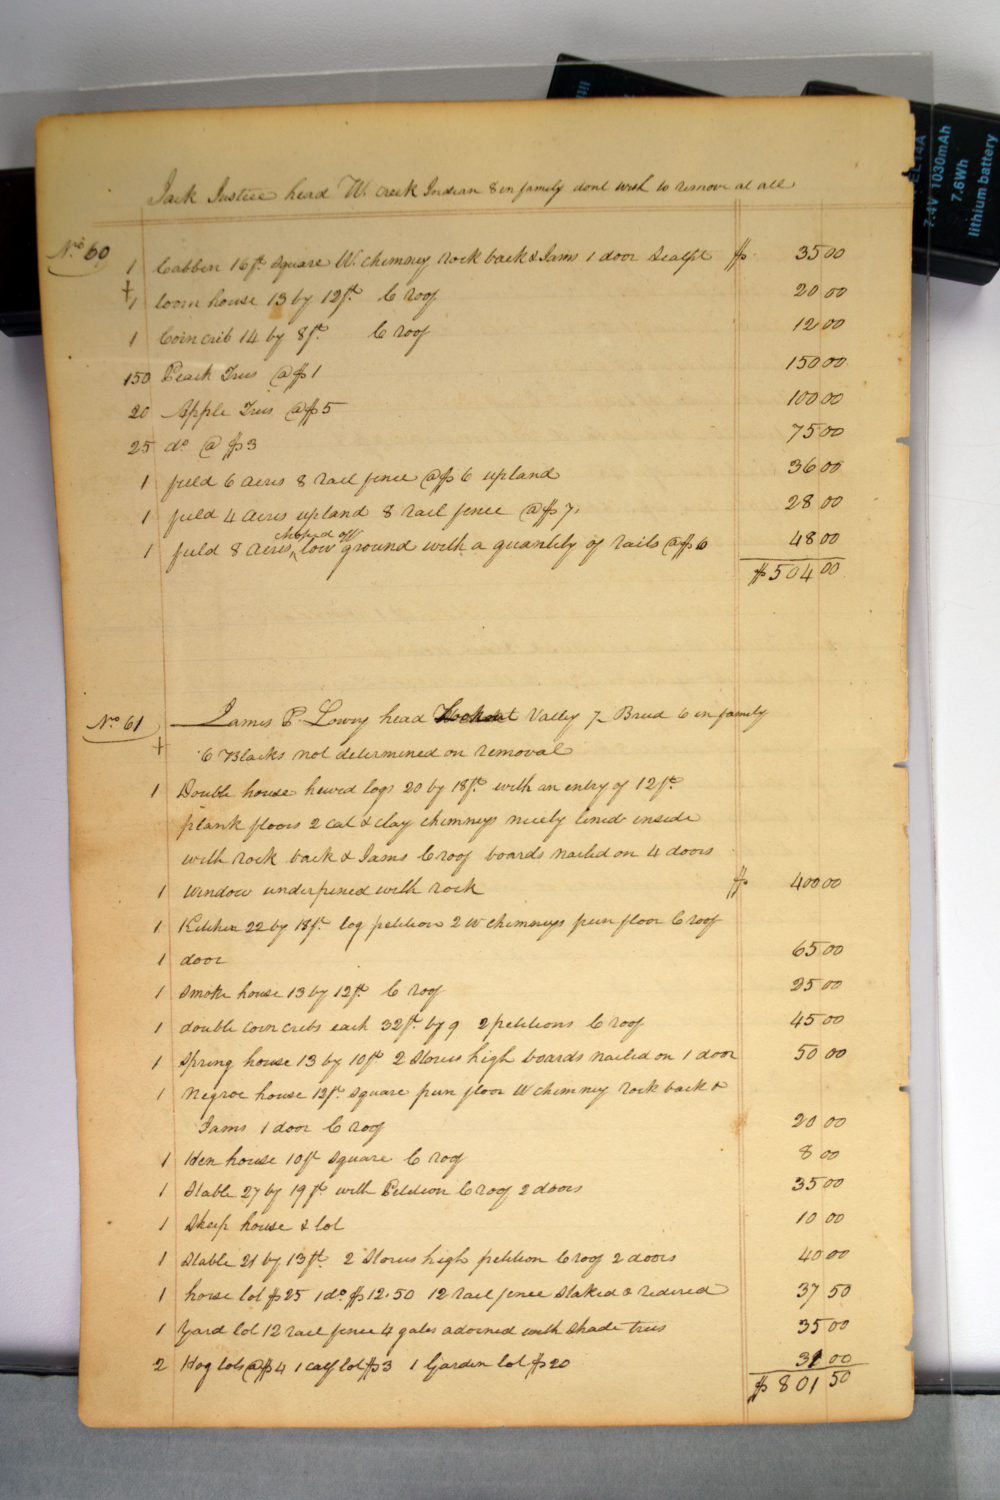 EL14A
7.4V 1030mAh
7.6Wh
lithium battery
Jack Justice head W. Creek Indian 8 in family dont wish to remove at all
No. 60
1 Cabben 16 ft. square W. chimney rock back & Jams 1 door Scalpt $ 35 00
1 loom house 13 by 12 ft. C roof 20 00
1 Corn crib 14 by 8 ft. C roof 12 00
150 Peach Trees @ $1 150 00
20 Apple Trees @ $5 100 00
25 do @ $3 75 00
1 field 6 acres 8 rail fence @ $6 upland 36 00
1 field 4 acres upland 8 rail fence @ $7. 28 00
1 field 8 acres, choped off low ground with a quantity of rails @ $6 48 00
$504 00
No. 61 James P. Lowry head Lookout Valley 7 Bred 6 in family
6 Blacks not determined on removal
1 Double house hewed logs 20 by 18 ft. with an entry of 12 ft.
plank floors 2 cat & clay chimneys nicely lined inside
with rock back & Jams C roof boards nailed on 4 doors
1 window underpined with rock $ 400 00
1 Kitchen 22 by 18 ft. log petition 2 W chimneys pun floor C roof
1 door 65 00
1 Smoke house 13 by 12 ft. C roof 25 00
1 double corn cribs each 32 ft. by 9 2 petitions C roof 45 00
1 Spring house 13 by 10 ft 2 Stories high boards nailed on 1 door 50 00
1 Negroe house 12 ft. square pun floor W chimney rock back &
Jams 1 door C roof 20 00
1 Hen house 10 ft square C roof 8 00
1 Stable 27 by 19 ft with Petition C roof 2 doors 35 00
1 Sheep house & lot 10 00
1 Stable 21 by 13 ft. 2 Stories high petition C roof 2 doors 40 00
1 horse lot $25 1 do $12.50 12 rail fence Staked & ridered 37 50
1 Yard lot 12 rail fence 4 gates adorned with Shade trees 35 00
2 Hog lots @ $4 1 calf lot $3 1 Garden lot $20 31 00
$ 801 50